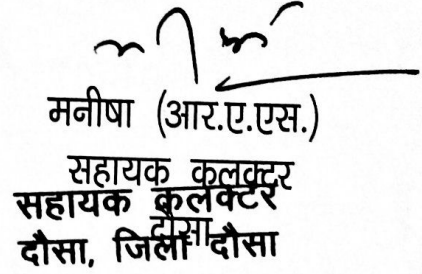 मनीषा (आर.ए.एस.)
सहायक कलक्टर
सहायक कलेक्टर
दौसा
दौसा, जिला दौसा